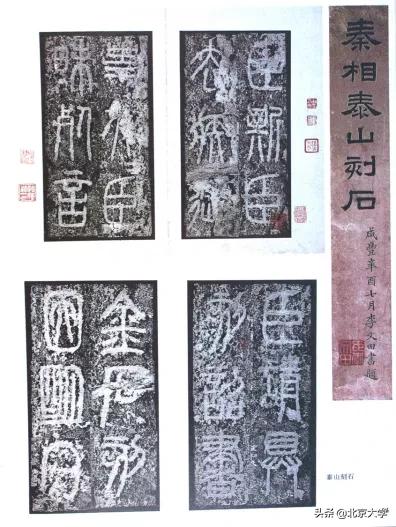 秦相泰山刻石
咸豐辛酉七月李文田書題
臣斯臣
去疾御
史夫臣
昧死言
臣請具
刻詔書
金石刻
因明白
泰山刻石
头条 @北京大学